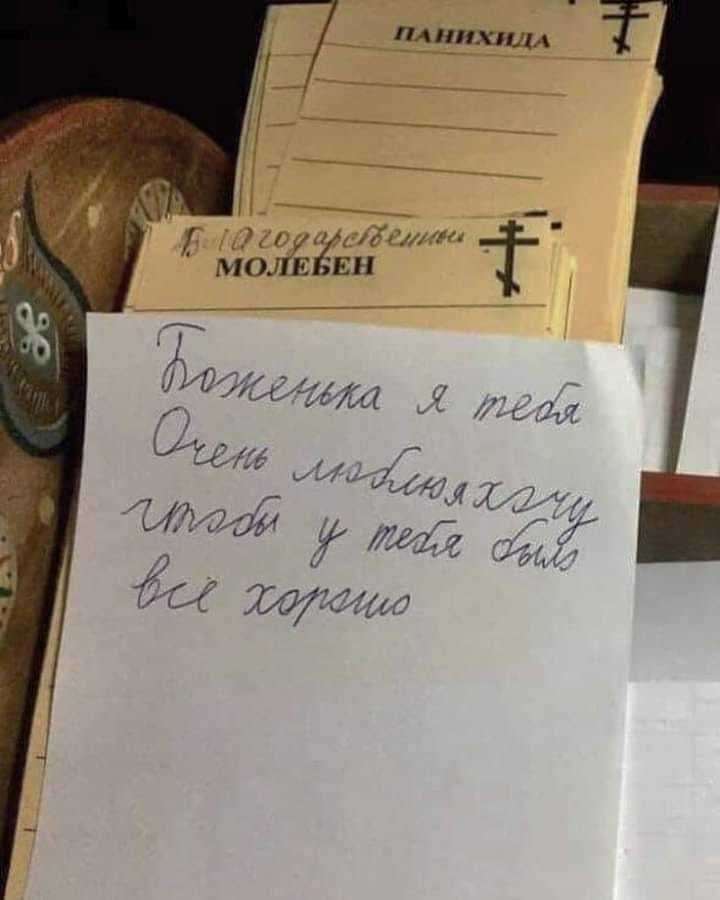 ПАНИХИДА
Благодарственный
МОЛЕБЕН
Боженька я тебя
Очень люблю я хочу
чтобы у тебя было
все хорошо